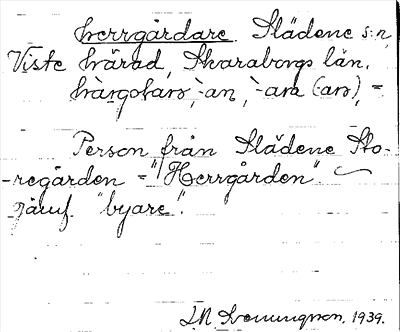 herrgårdare. Slädene s:n,
Viste härad, Skaraborgs län.
-an, -ara (-ars), =
Person från Slädene Sto-
-regården = "Herrgården".
jämf. "byare".
1939.